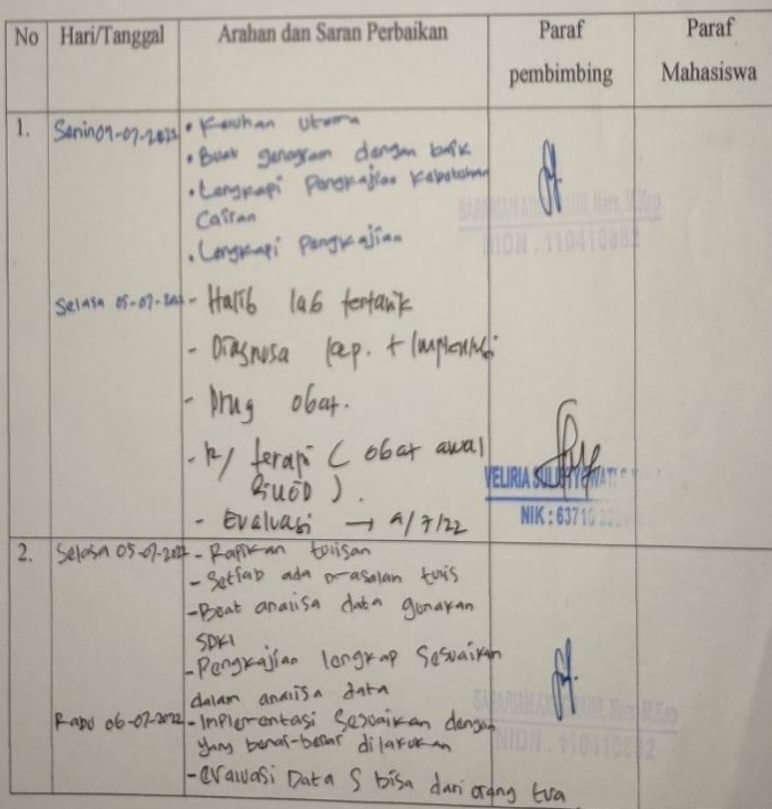 No Hari/Tanggal Arahan dan Saran Perbaikan Paraf Paraf
pembimbing Mahasiswa
1. Senin 04-07-2022 • Keluhan Utama
• Buat genogram dengan baik
• Lengkapi Pengkajian Kebutuhan
Cairan
• Lengkapi Pengkajian
NIDN . 110410882
Selasa 05-07-2022 - Hasil lab
- Diagnosa kep. + Implentasi
- Drug obat.
- R/ terapi ( obat awal
).
VELIRIA
- Evaluasi → 4/7/22
NIK : 63710
2. Selasa 05-07-2022 - Rapikan tulisan
- Setiap ada masalah tulis
- Buat analisa data gunakan
SDKI
- Pengkajian lengkap Sesuaikan
dalam analisa data
Rabu 06-07-2022 - Implementasi Sesuaikan dengan
yang benar-benar dilakukan
- evaluasi Data S bisa dari orang tua